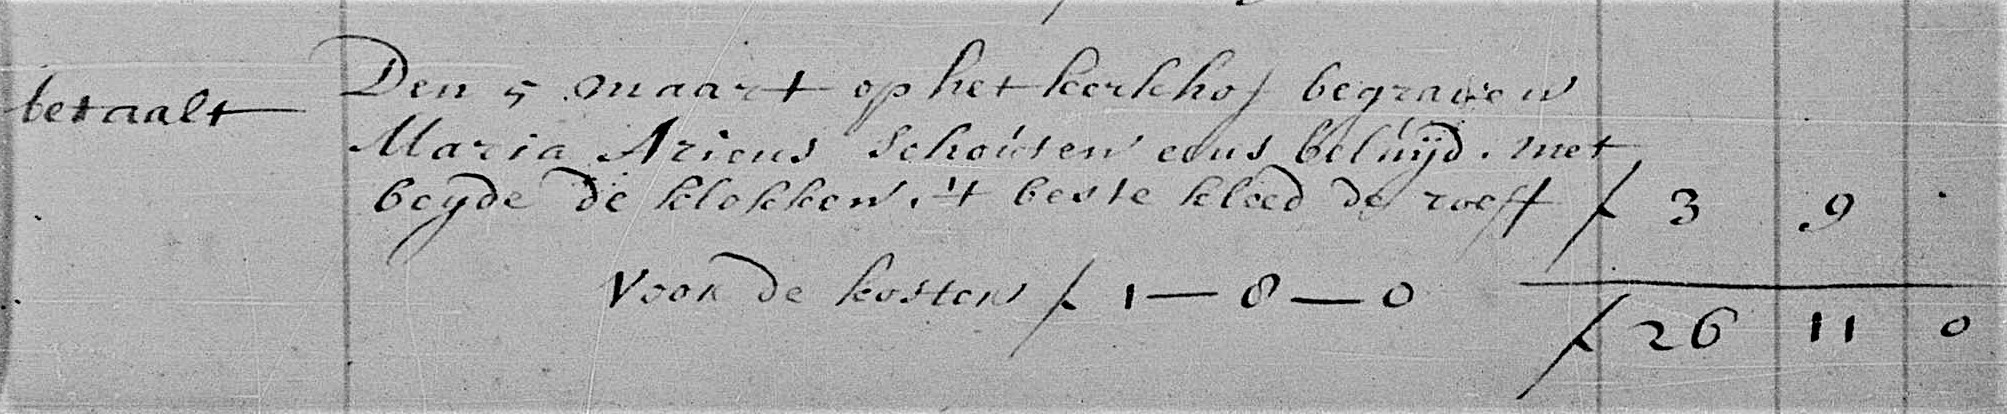 betaalt
Den 5 maart op het kerkhof begraven
Maria Ariens Schouten eens beluijd. met
beyde de klokken, 't beste kleed de roeff ƒ 3 9 .
Voor de kosten ƒ 1 — 8 — 0
ƒ 26 11 0